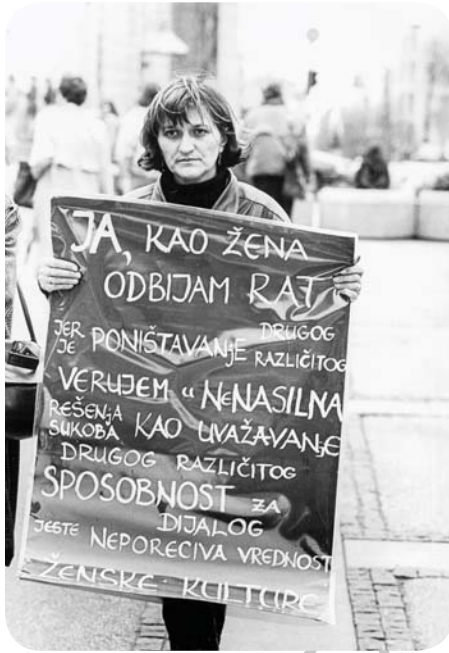 JA, KAO ŽENA
ODBIJAM RAT
JER JE PONIŠTAVANjE DRUGOG RAZLIČITOG
VERUJEM u NeNASILNA
REŠENjA SUKOBA KAO UVAŽAVANjE
DRUGOG RAZLIČITOG
SPOSOBNOST ZA
DIJALOG
JESTE NEPORECIVA VREDNOST
ŽENSKE KULTURE